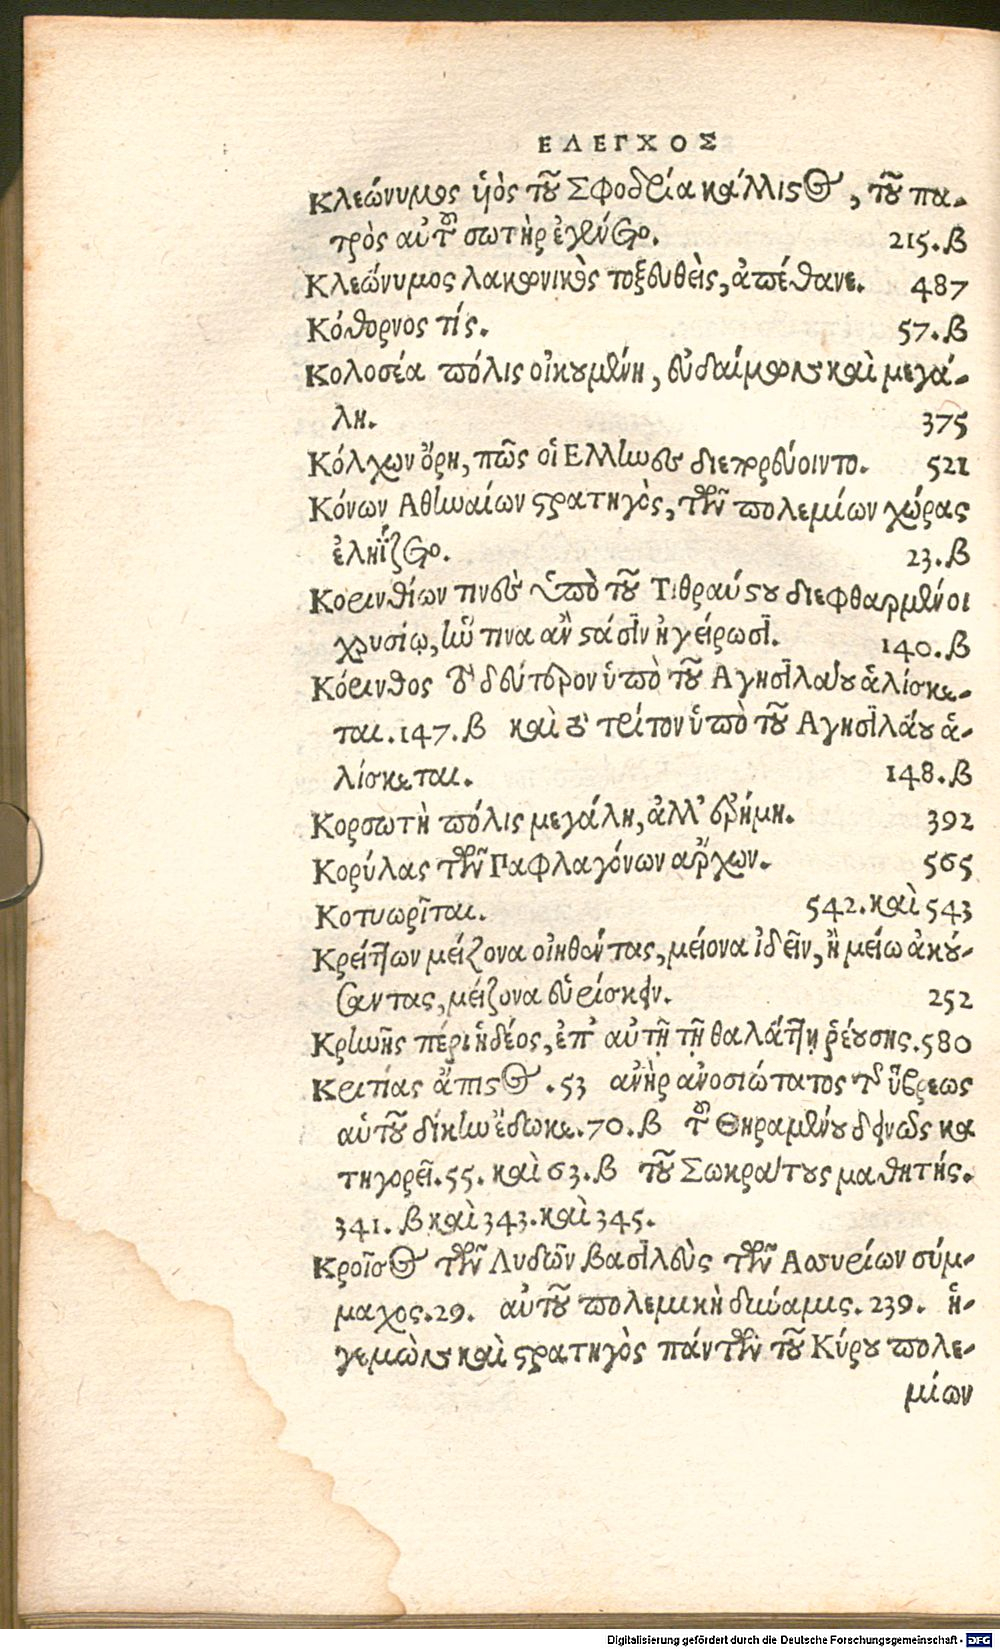 ΕΛΕΓΧΟΣ
Κλεώνυμος ὑὸς τοῦ Σφοδρία κάλλιστος, τοῦ πα-
τρὸς αὐτοῦ σωτὴρ ἐγένετο. 215.β
Κλεώνυμος λακωνικὸς τοξευθεὶς, ἀπέθανε. 487
Κόθορνος τίς. 57.β
Κολοσέα πόλις οἰκουμένη, εὐδαίμων καὶ μεγά-
λη. 375
Κόλχων ὄρη, πῶς οἱ Ελληνες διεπορεύοιντο. 521
Κόνων Αθηναίων στρατηγὸς, τῶν πολεμίων χώρας
ἐληΐζετο. 23.β
Κορινθίων τινὲς ὑπὸ τοῦ Τιθραύστου διεφθαρμένοι
χρυσίῳ, ἥν τινα ἂν στάσιν ἠγείρωσι. 140.β
Κόρινθος τὸ δεύτερον ὑπὸ τοῦ Αγησιλάου ἁλίσκε-
ται.147.β καὶ τὸ τρίτον ὑπὸ τοῦ Αγησιλάου ἁ-
λίσκεται. 148.β
Κορσωτὴ πόλις μεγάλη, ἀλλ' ἐρήμη. 392
Κορύλας τῶν Παφλαγόνων ἄρχων. 565
Κοτυωρῖται. 542.καὶ 543
Κρείττων μείζονα οἰηθέντας, μείονα ἰδεῖν, ἢ μείω ἀκού-
σαντας, μείζονα εὑρίσκειν. 252
Κρήνης πέρι ἡδέος, ἐπ' αὐτῇ τῇ θαλάττῃ ῥέουσης.580
Κριτίας ἄπιστος.53 ἀνὴρ ἀνοσιώτατος τῆς ὕβρεως
αὑτοῦ δίκην ἔδωκε.70.β τοῦ Θηραμένου δεινῶς κα
τηγορεῖ.55. καὶ 63.β τοῦ Σωκράτους μαθητής.
341. β καὶ 343.καὶ 345.
Κροῖσος τῶν Λυδῶν βασιλεὺς τῶν Ασσυρίων σύμ-
μαχος.29. αὐτοῦ πολεμικὴ δύναμις. 239. ἡ-
γεμὼν καὶ στρατηγὸς πάντων τοῦ Κύρου πολε-
μίων
Digitalisierung gefördert durch die Deutsche Forschungsgemeinschaft - DFG